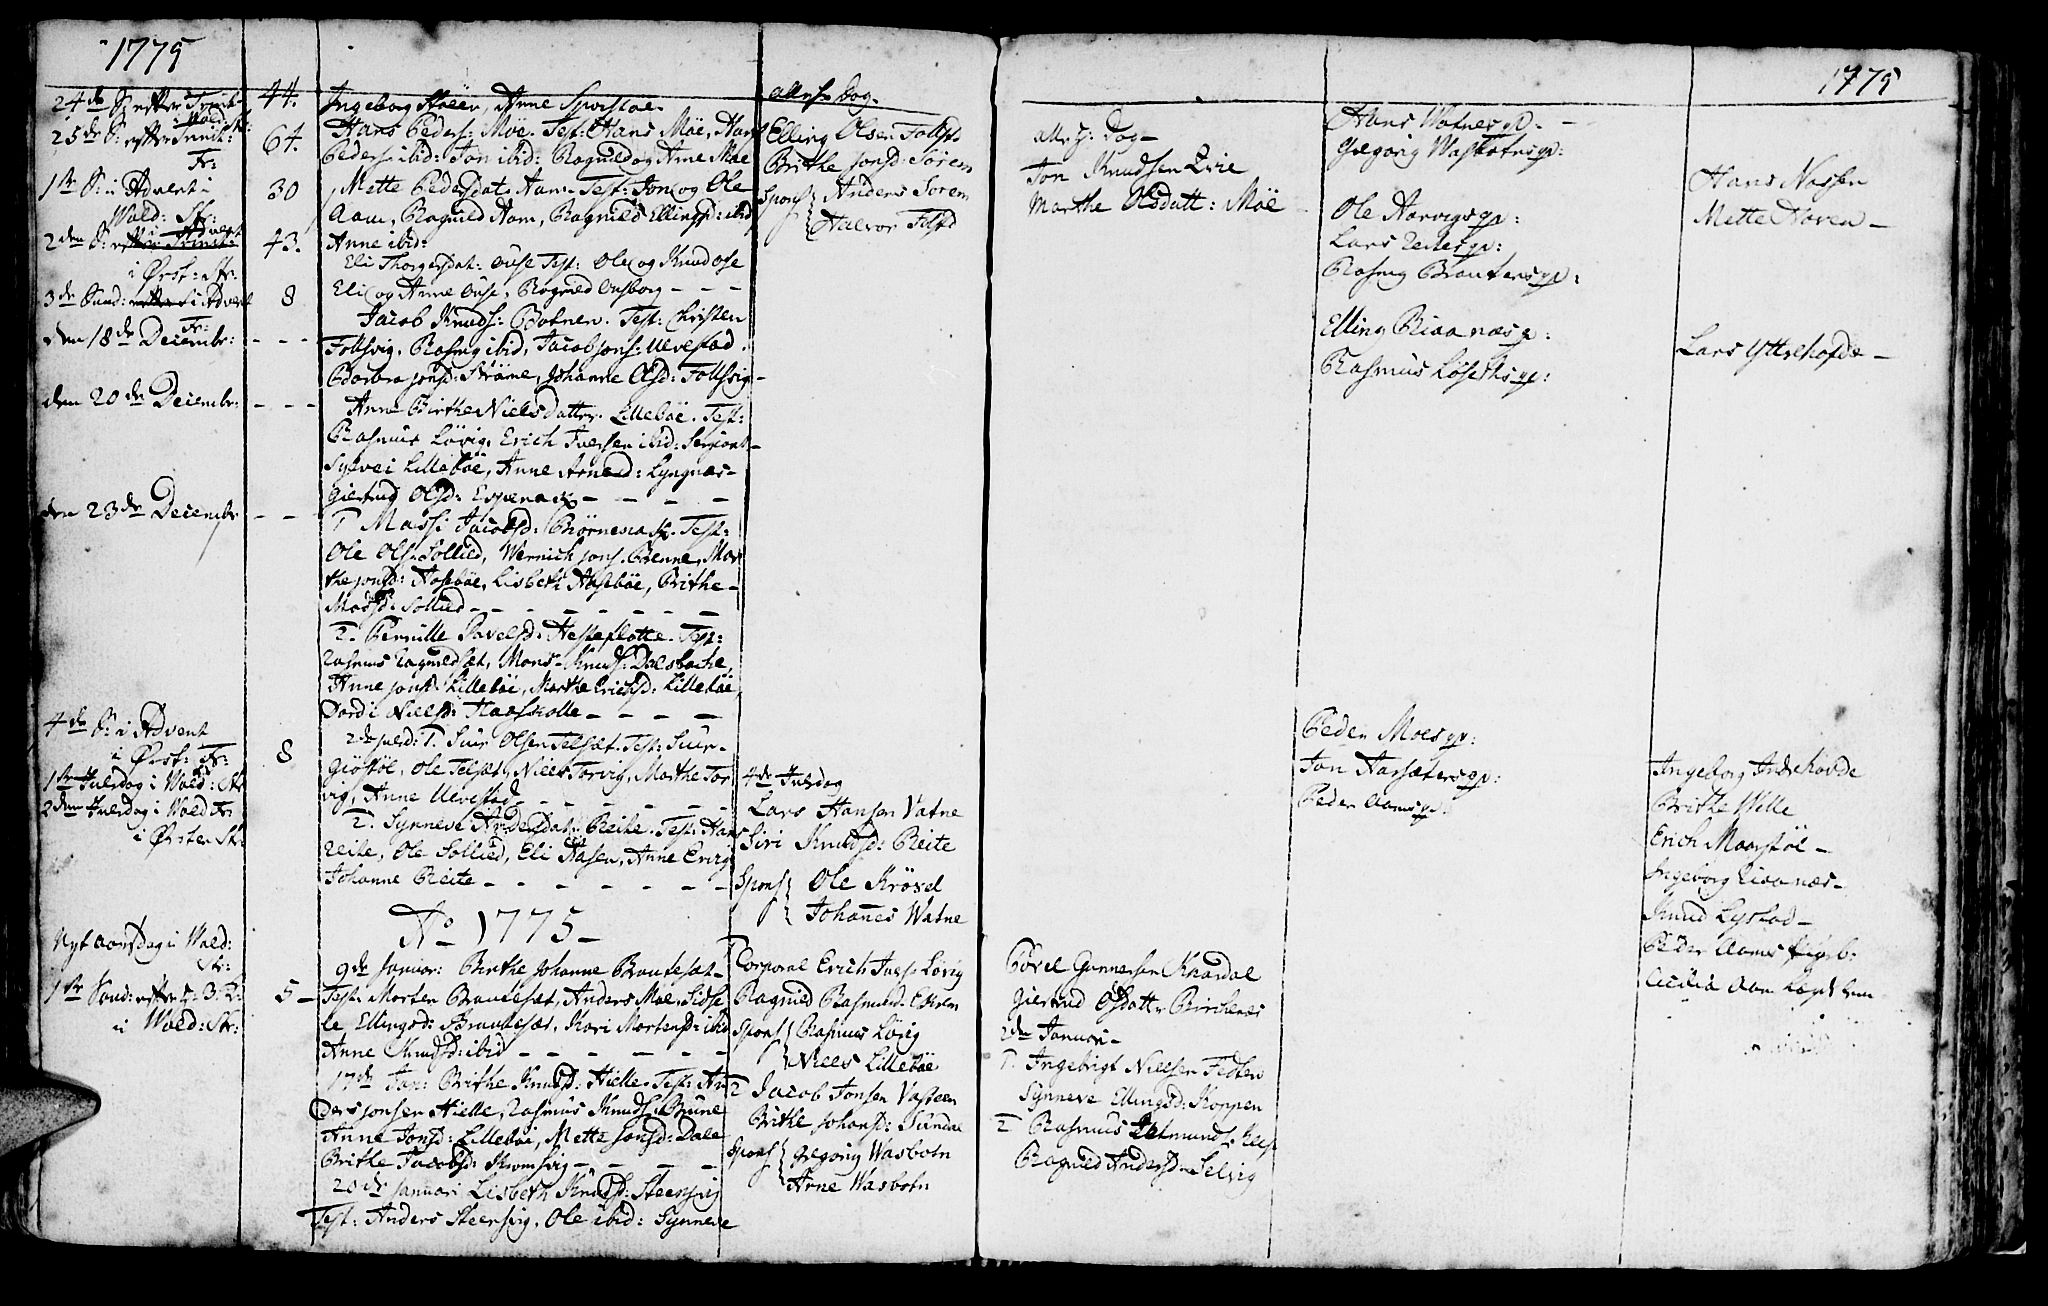 1775
1775
24de S: efter Trinit:
i Wold: Str:
25de S: efter Trinit:
Fr:
1te S: i Advent i
Wold: Str:
2den S: i Advent
i Ørst: Str.
3de Sund: i Advent
Fr:
den 18de Decembr:
den 20de Decembr:
den 23de Decembr
4de S: i Advent
i Ørst: Fr:
1te Juledag i Wold: Str
2den Juledag i Wold Fr
i Ørsten Str
Nyt aarsdag i Wold:
Str:
1te Sønd: efter h: 3: K:
i Wold: Str:
44.
64.
30
43.
8
8
5
Ingeborg Støeen, Anne Sporstøe.
Hans Peders: Moe. Test: Hans Moe, Hans
Peders: ibid: Jon ibid: Ragnild og Arne Moe
Mette Pedersdat: Aam. Test: Jon og Ole
Aam, Ragnild Aam, Ragnild Ellingsd: ibid
Anne ibid:
Eli Thorgersdat: Ouse Test: Ole og Knud Ose
Eli og Anne Ouse, Ragnild Ousborg - - -
Jacob Knuds: Botnen. Test: Christen
Follsvig, Rasmus ibid, Jacob Jons: Ulvestad.
Barbra Jonsd: Strøme, Johanne Olsd: Follsvig
Anne Birthe Nielsdatter. Lillebøe. Test:
Rasmus Løvig, Erich Iversen ibid: Sergiant
Sylvei Lillebøe, Anne Arnesd: Lyngnæs
Giertrud Olsd: Espenack - - - -
T Massi Jacobsd: Biørnenack. Test:
Ole Ols: Sollied, Wernich Jons. Brenne, Mar
the Jonsd: Aasebøe, Lisbeth Aasebøe, Birthe
Madsd: Sollied - - - - - - -
T. Pernille Pavelsd: Hesteflotte. Test:
Rasmus Ragnildsæt, Mons Knuds: Dalsbache,
Anne Jonsd: Lillebøe, Marthe Erichsd: Lillebøe,
Dordi Nielsd: Haaskolle - - - -
2de Juled: T. Siur Olsen Telsæt. Test: Siur
Giøstøl, Ole Telsæt, Niels Torvig, Marthe Tor
vig, Anne Ulvestad - - - - -
T. Synneve Andersdat: Reite. Test: Hans
Reite, Ole Sollied, Eli Aasen, Anne Erviig
Johanne Reite - - - - - - -
Ao 1775
9de Januar: Birthe Johanne Brautesæt
Test: Morten Brautesæt, Anders Moe, Sidse
le Ellingsd: Brautesæt, Kari Mortensd: ibid
Anne Knudsd: ibid - - - - -
17de Jan: Brithe Knudsd: Hielle. Test: An
ders Jonsen Hielle, Rasmus Knuds: Brune
Anne Jonsd: Lillebøe, Mette Jonsd: Dale
Brithe Jacobsd: Kromsvig - - - -
20de Januari Lisbeth Knudsd: Steensvig
Test: Anders Steensvig, Ole ibid: Synneve
allesh: Dag.
Elling Olsen Follsd
Brithe Jonsd: Sørem
Spons { Anders Sorem
Halvor Follsd
4de Juledag
Lars Hansen Vatne
Siri Knudsd: Reite
Spons { Ole Krøvel
Johannes Watne
Corporal Erich Ivers: Løvig
Ragnild Rasmusd: Eskren
Spons { Rasmus Løvig
Niels Lillebøe
T Jacob Jonsen Vasteen
Birthe Johansd: Sundal
Spons { Gregorig Wasbotn
Arne Wasbotn
allesh: Dag
Jon Knudsen Qvie
Marthe Olsdatt: Moe
Povel Gunnersen Knardal
Giertrud Olsdatt: Birchenæs
2de Januari
T. Ingebrigt Nielsen Fedten
Synneve Ellingsd: Koppen
T Rasmus
Ragnild Andersd: Selvig
Hans Watnes gr.
Gregorig Wasbotns gr:
Ole Aarvigs gr:
Lars gr:
Rasmus Brauters gr:
Elling Riaanæs gr:
Rasmus Løseths gr:
Peder Moes gr:
Jon Aarsæters gr:
Peder Aams gr.
Hans Nossen
Mette Hoven
Lars Yttrehofde
Ingeborg Indrehovde
Brithe Wille
Erich Maarstøl
Ingeborg Riaanæs
Knud Lystad
Peder Aams Pigeb:
Cicilia Aam